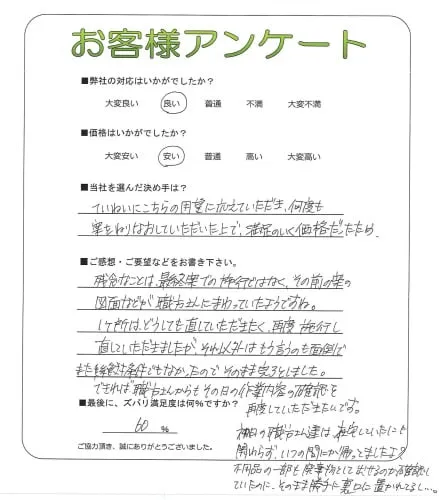 お客様アンケート
■弊社の対応はいかがでしたか？
大変良い 良い 普通 不満 大変不満
■価格はいかがでしたか？
大変安い 安い 普通 高い 大変高い
■当社を選んだ決め手は？
ていねいにこちらの要望に応えていただき、何度も
案をねりなおしていただいた上で、満足のいく価格だったため。
■ご感想・ご要望などをお書き下さい。
残念なことは、最終案での施行ではなく、その前の案の
図面などが職方さんにまわっていたようですね。
1ヶ所は、どうしても直していただきたく、再度施行し
直していただきましたが、それ以外はもう言うのも面倒で
また絶対条件でもなかったのでそのまま完了としました。
できれば職方さんからもその日の作業内容の確認を
再度していただきたいです。
■最後に、ズバリ満足度は何％ですか？
60 ％
ご協力頂き、誠にありがとうございました。
初日の職方さん達は、在宅していたにも
関わらず、いつの間にか帰ってましたよ？
不用品の一部も廃棄物として出せるのか確認し
ていたのに、そのまま勝手に裏口に置かれてるし…。